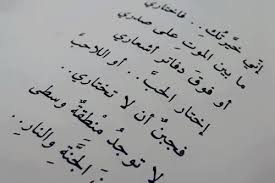 إني خيّرتُك.. فاختاري
ما بين الموتِ على صدري
أو فوقَ دفاترِ أشعاري
إختاري الحبَّ.. أو اللاحبَّ
فجبنٌ أن لا تختاري..
لا توجدُ منطقةٌ وسطى
الجنّةِ والنارِ..